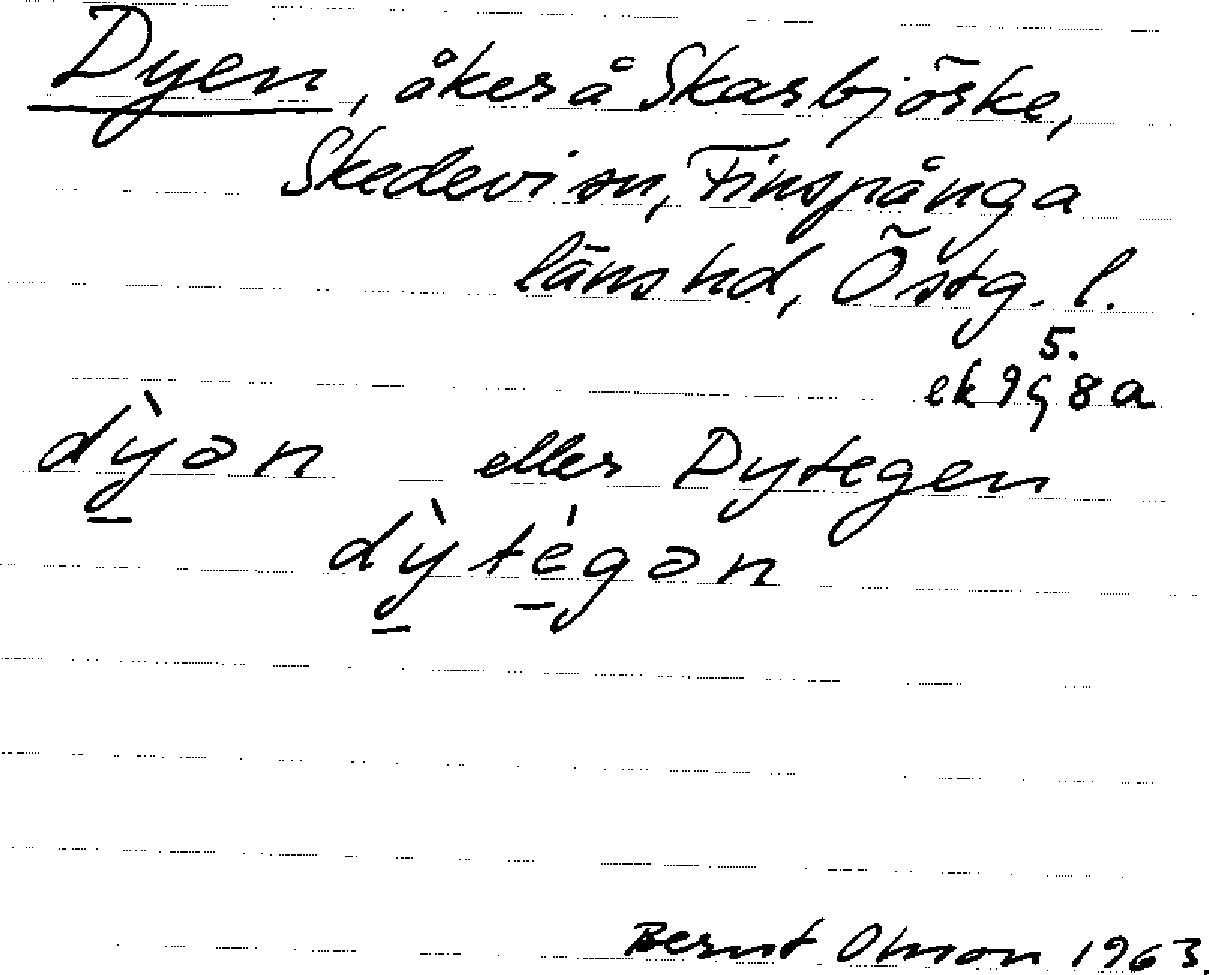 Dyen, åker å Skarbjörke,
Skedevi sn, Finspånga
läns hd, Östg. l.
5.
ek 9G 8 a
dỳən eller Dytegen
dỳtégən
Bernt Olsson 1963.